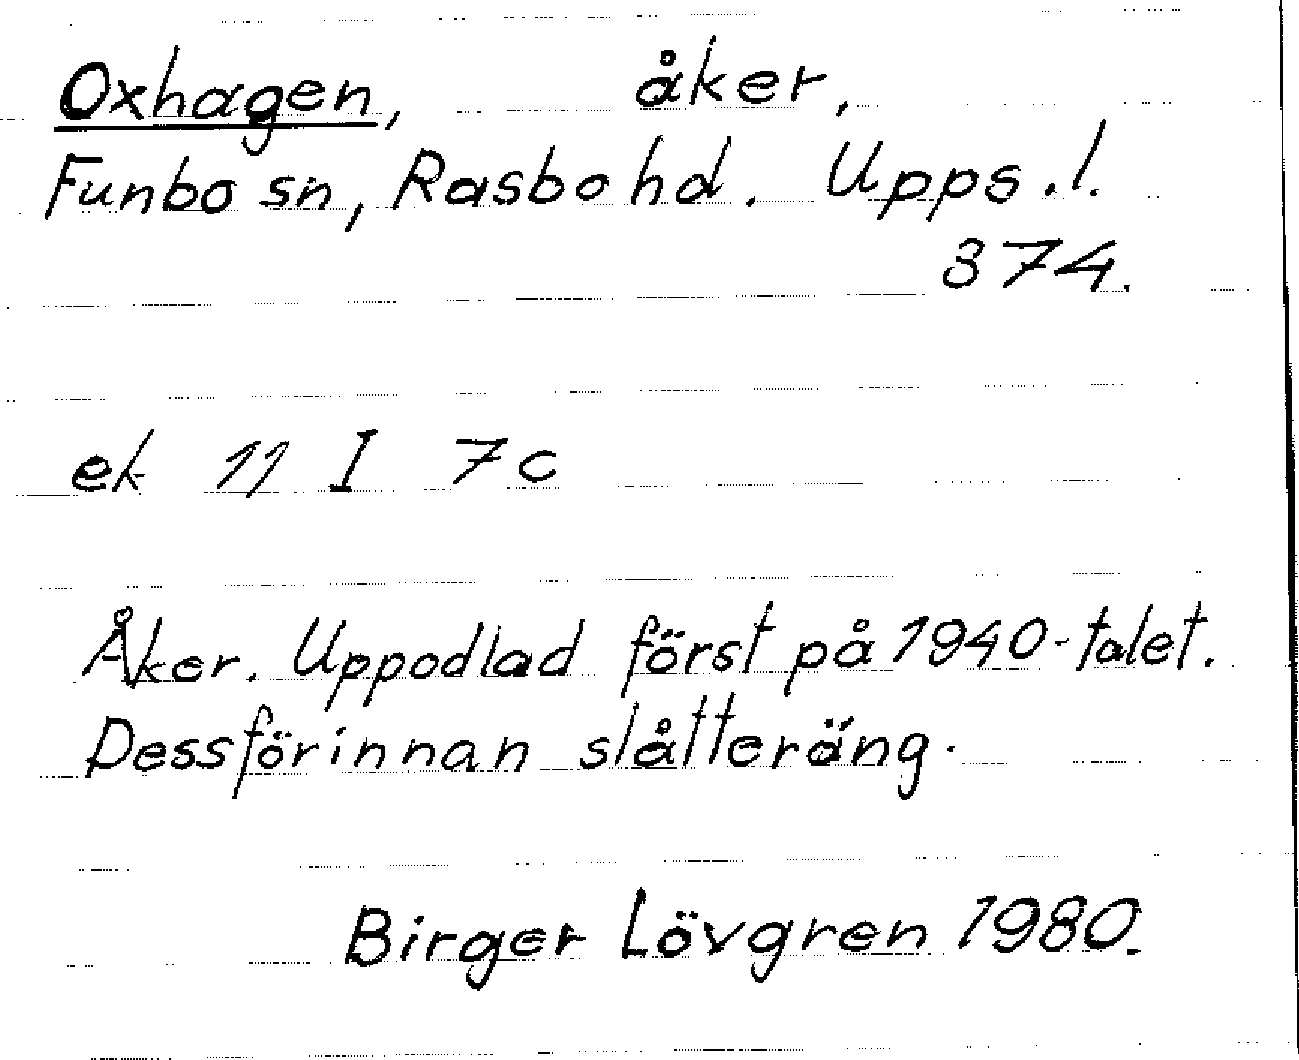 Oxhagen, åker,
Funbo sn, Rasbo hd. Upps. l.
374.
ek 11 I 7c
Åker. Uppodlad först på 1940-talet.
Dessförinnan slåtteräng.
Birger Lövgren 1980.